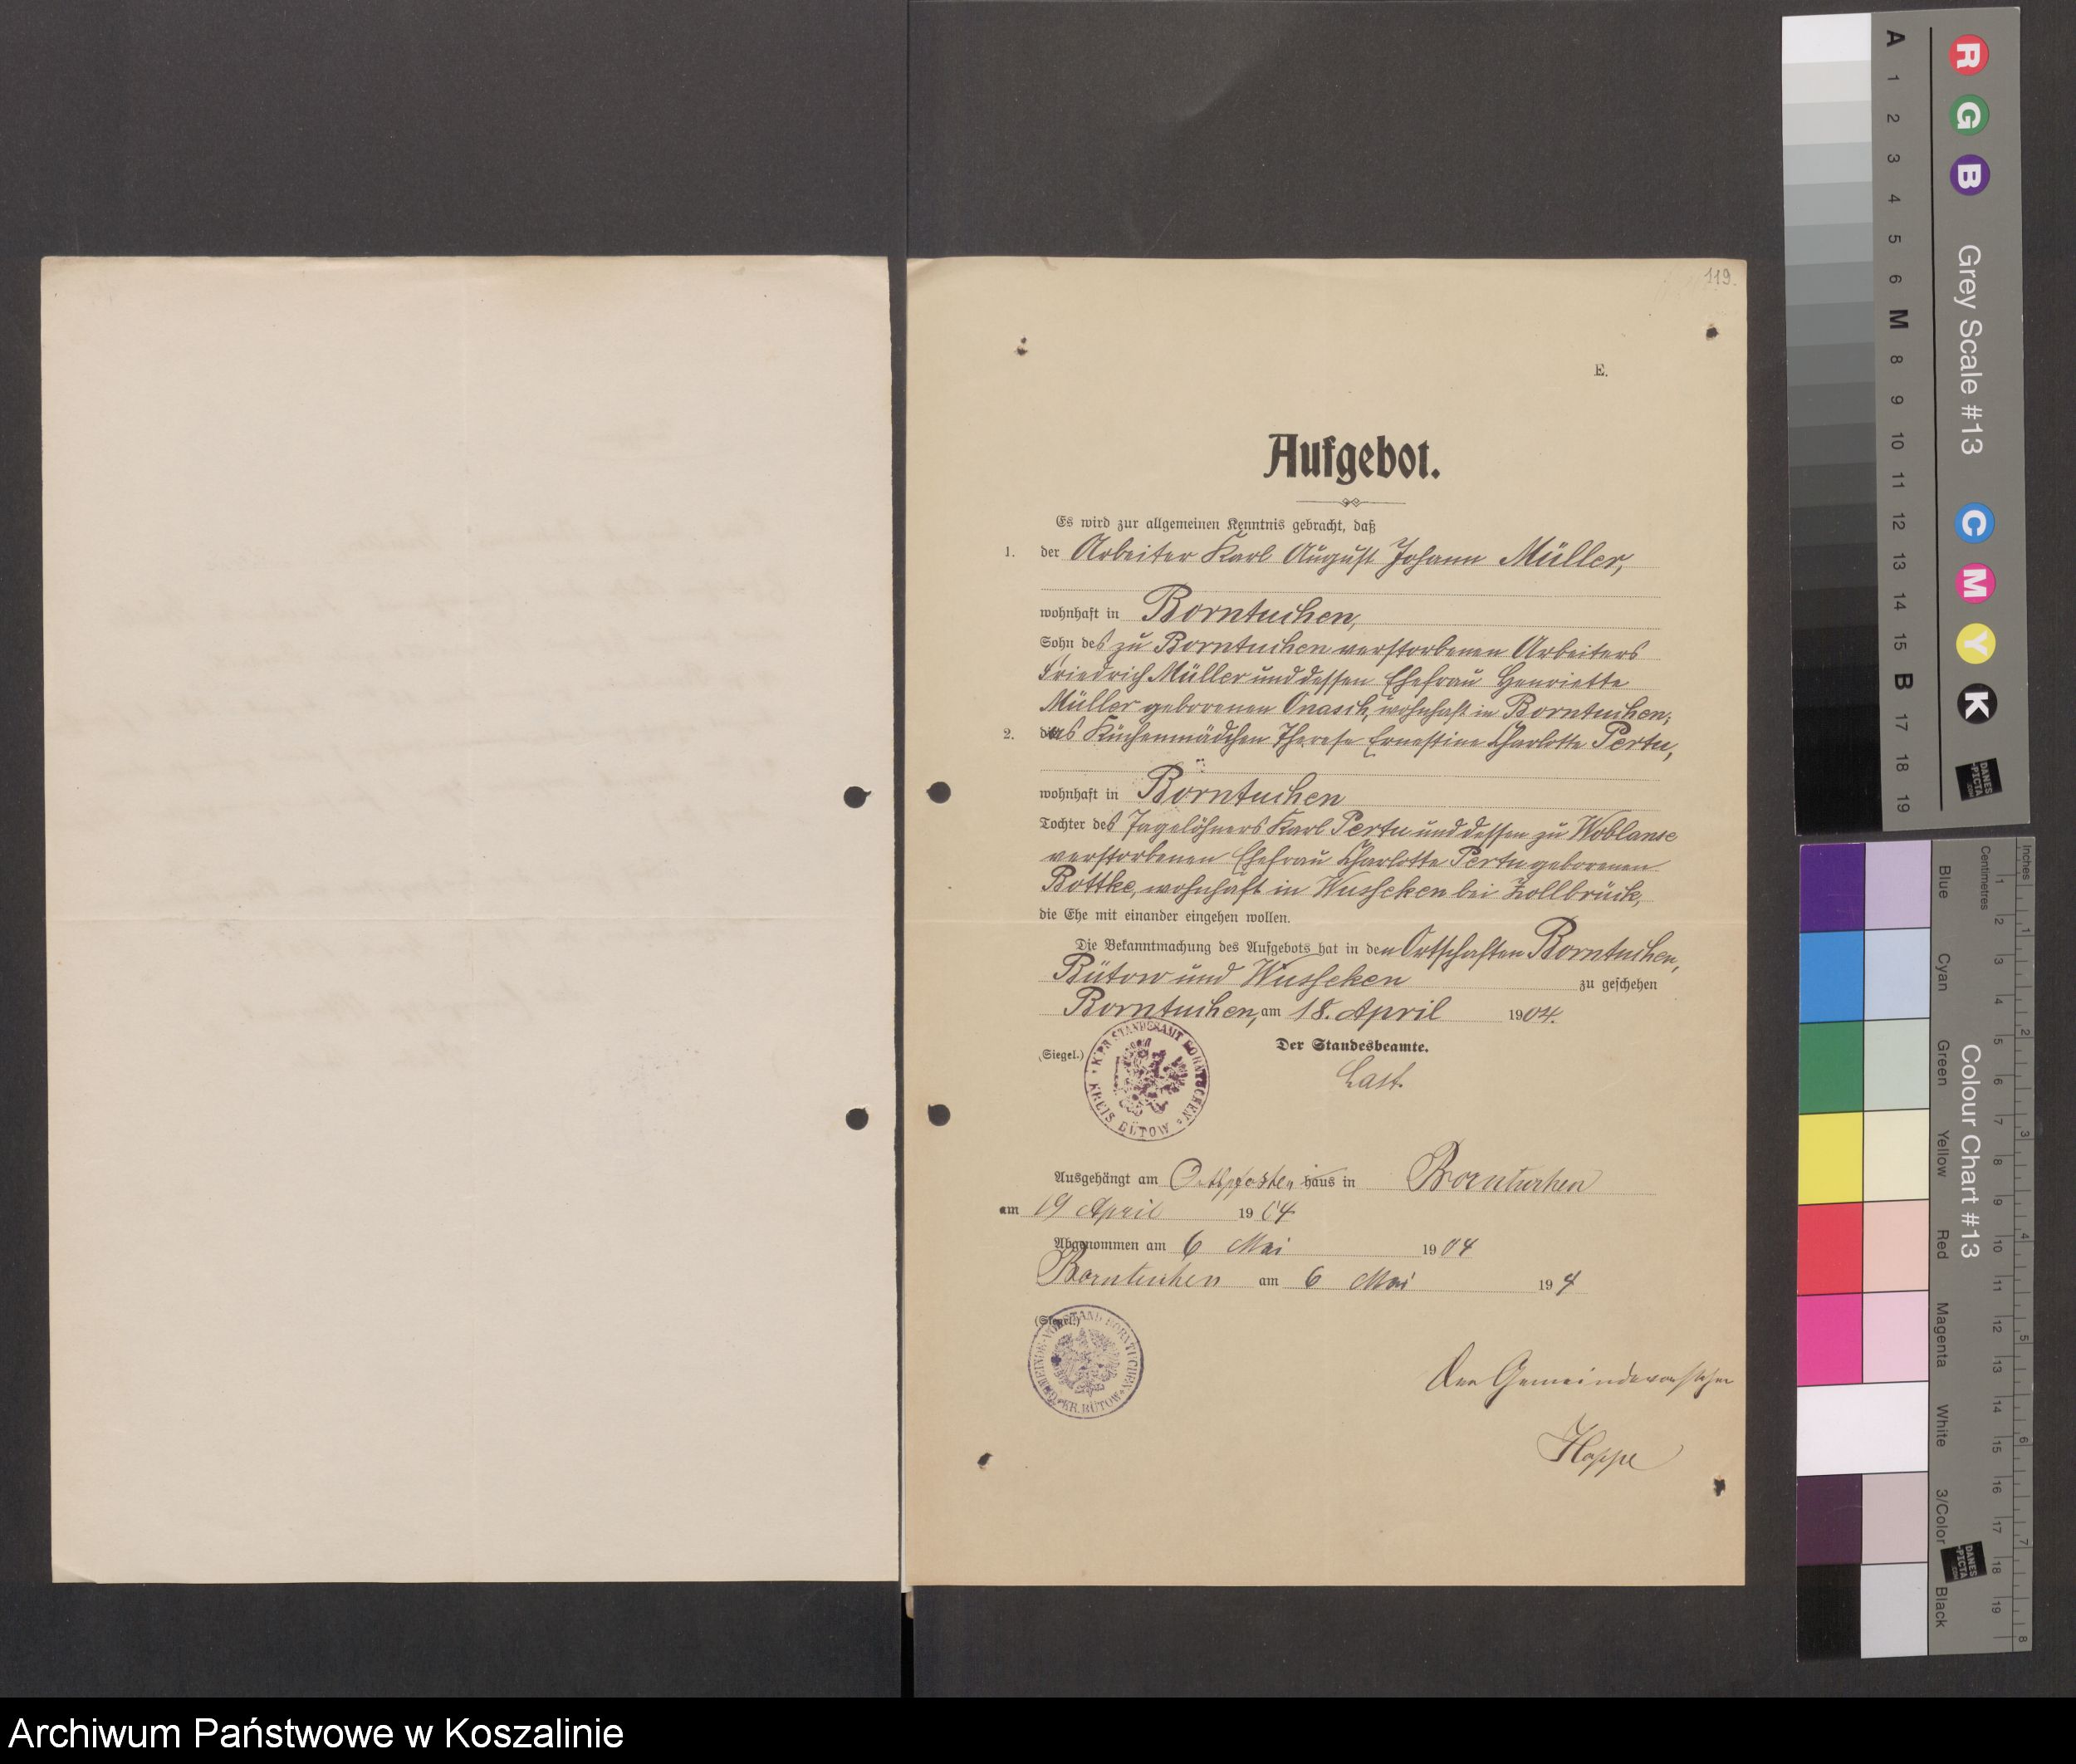 119.
E.
Aufgebot.
Es wird zur allgemeinen Kenntnis gebracht, daß
1. der Arbeiter Karl August Johann Müller,
wohnhaft in Borntuchen,
Sohn des zu Borntuchen verstorbenen Arbeiters
Friedrich Müller und dessen Ehefrau Henriette
Müller geborenen Onasch, wohnhaft in Borntuchen;
2. das Küchenmädchen Therese Ernestine Charlotte Pertu,
wohnhaft in Borntuchen
Tochter des Tagelöhners Karl Pertu und dessen zu Woblanse
verstorbenen Ehefrau Charlotte Pertu geborenen
Bottke, wohnhaft in Wusseken bei Zollbrück,
die Ehe mit einander eingehen wollen.
Die Bekanntmachung des Aufgebots hat in den Ortschaften Borntuchen,
Bütow und Wusseken zu geschehen
Borntuchen, am 18. April 1904.
(Siegel.) Der Standesbeamte.
K.PR. STANDESAMT BORNTUCHEN * KREIS BÜTOW *
Last.
Ausgehängt am Ortspfosten haus in Borntuchen
am 19 April 1904
Abgenommen am 6 Mai 1904
Borntuchen am 6 Mai 194
(Siegel.)
GEMEINDE-VORSTAND BORNTUCHEN * KR. BÜTOW *
Der Gemeindevorsteher
Hoppe
Archiwum Państwowe w Koszalinie
R G B Grey Scale #13 C M Y K
A 1 2 3 4 5 6 M 8 9 10 11 12 13 14 15 B 17 18 19
DANES PICTA .COM
Colour Chart #13
Blue Cyan Green Yellow Red Magenta White 3/Color Black
Centimetres 1 2 3 4 5 6 7 8 9 10 11 12 13 14 15 16 17 18 19
Inches 1 2 3 4 5 6 7 8
DANES PICTA .COM